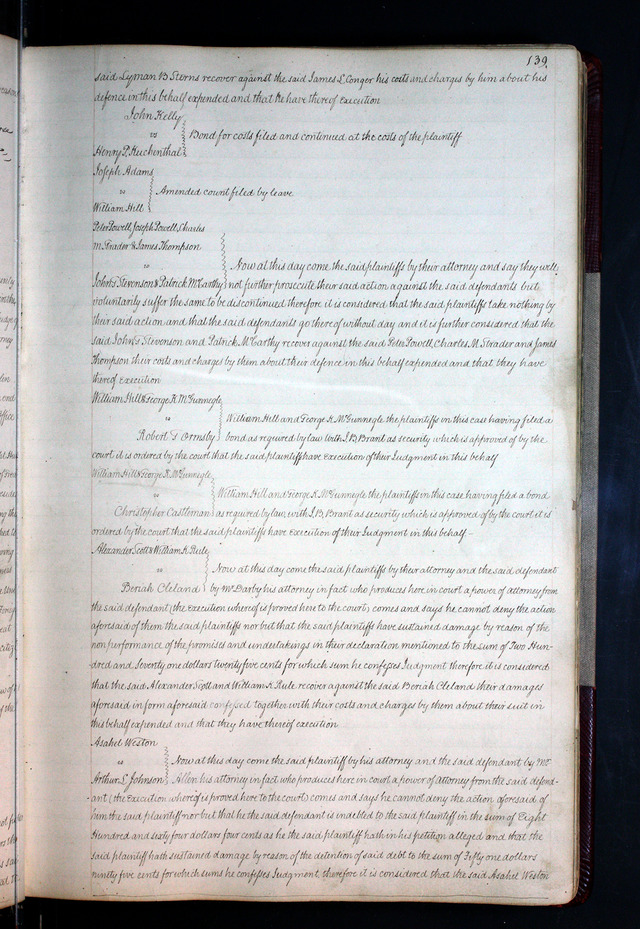 139
said Lyman B Sterns recover against the said James L Conger his costs and charges by him about his
defence in this behalf expended and that he have there of execution
John Kelly
vs
Bond for costs filed and continued at the costs of the plaintiff
Henry P. Huckenthal
Joseph Adams
vs
Amended count filed by leave
William Hill
Peter Powell, Joseph Powell, Charles
M Strader & James Thompson
vs
Now at this day come the said plaintiffs by their attorney and say they will
John S Stevonson & Patrick McCarthy
not further prosecute their said action against the said defendants but
voluntarily suffer the same to be discontinued therefore it is considered that the said plaintiffs take nothing by
their said action and that the said defendants go there of without day and it is further considered that the
said John S Stevonson and Patrick McCarthy recover against the said Peter Powell, Charles M. Strader and James
Thompson their costs and charges by them about their defence in this behalf expended and that they have
thereof execution
William Hill & George K McGunnegle
vs
William Hill and George K McGunnegle the plaintiffs in this case having filed a
Robert T Ormsby
bond as required by law with J B Brant as security which is approved of by the
court it is ordered by the court that the said plaintiffs have execution of their Judgment in this behalf
William Hill & George K. McGunnegle
vs
William Hill and George K McGunnegle the plaintiffs in this case having filed a bond
Christopher Castleman
as required by law with J. B. Brant as security which is approved of by the court it is
ordered by the court that the said plaintiffs have execution of their Judgment in this behalf -
Alexander Scott & William K Rule
vs
Now at this day come the said plaintiffs by their attorney and the said defendant
Beriah Cleland
by Mr Darby his attorney in fact who produces here in court a power of attorney from
the said defendant (the execution whereof is proved here to the court) comes and says he cannot deny the action
aforesaid of them the said plaintiffs nor but that the said plaintiffs have sustained damage by reason of the
non performance of the promises and undertakings in their declaration mentioned to the sum of Two Hun-
dred and Seventy one dollars twenty five cents for which sum he confesses Judgment therefore it is considered
that the said Alexander Scott and William K Rule recover against the said Beriah Cleland their damages
aforesaid in form aforesaid confessed together with their costs and charges by them about their suit in
this behalf expended and that they have there of execution
Asahel Weston
vs
Now at this day come the said plaintiff by his attorney and the said defendant by Mr
Arthur L Johnson
Allen his attorney in fact who produces here in court a power of attorney from the said defend-
ant (the execution whereof is proved here to the court) comes and says he cannot deny the action aforesaid of
him the said plaintiff nor but that he the said defendant is indebted to the said plaintiff in the sum of Eight
Hundred and sixty four dollars four cents as he the said plaintiff hath in his petition alleged and that the
said plaintiff hath sustained damage by reason of the detention of said debt to the sum of Fifty one dollars
ninety five cents for which sums he confesses Judgment therefore it is considered that the said Asahel Weston